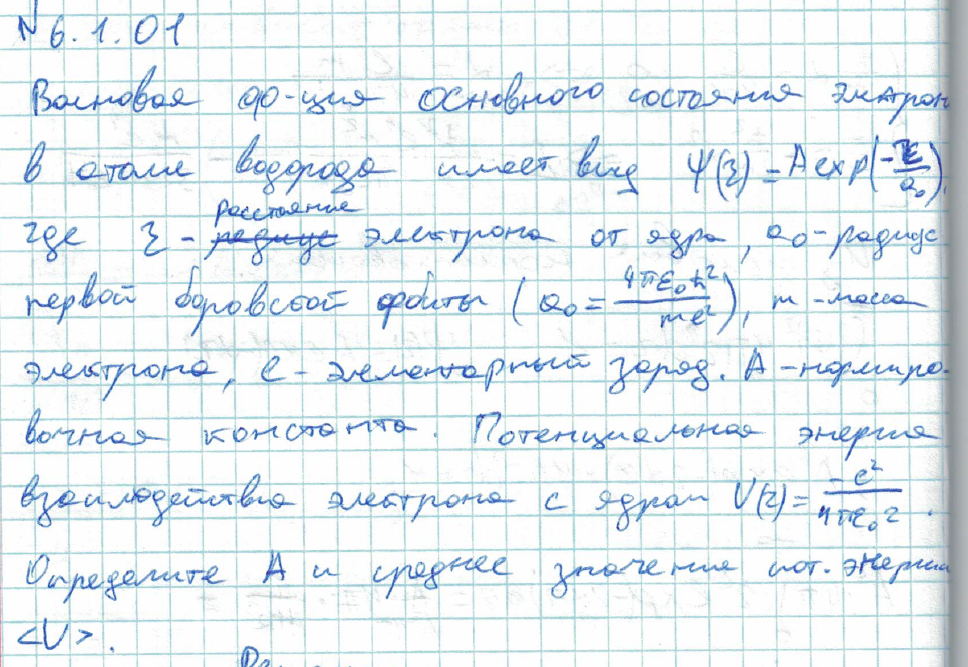 № 6.1.01
Волновая ф-ция основного состояния электрон
в атоме водорода имеет вид Ψ(r) = A exp(-r/a₀),
расстояние
где r - радиус электрона от ядра, a₀ - радиус
первой боровской орбиты (a₀ = 4πε₀ħ²/me²), m - масса
электрона, e - элементарный заряд. A - нормиро-
вочная константа. Потенциальная энергия
взаимодействия электрона с ядром U(r) = -e²/4πε₀r.
Определите A и среднее значение пот. энергии
<U>.